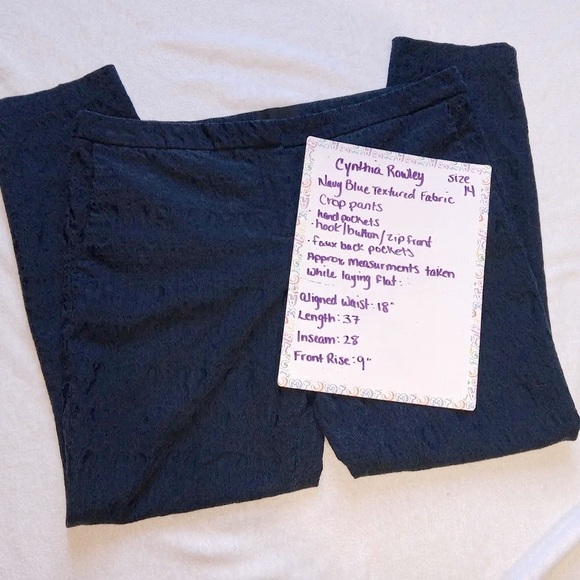 Cynthia Rowley size 14
Navy Blue Textured Fabric
Crop pants
· hand pockets
· hook/button/zip front
· faux back pockets
Approx measurments taken
while laying flat:
aligned waist: 18"
Length: 37
Inseam: 28
Front Rise: 9"